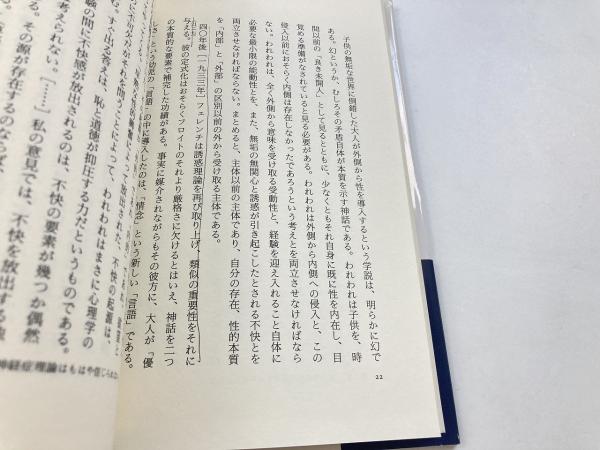 子供の無垢な世界に倒錯した大人が外側から性を導入するという学説は、明らかに幻で
ある。幻というか、むしろその矛盾自体が本質を示す神話である。われわれは子供を、時
間以前の「良き未開人」として見るとともに、少なくともそれ自身に既に性を内在し、目
覚める準備がなされていると見る必要がある。われわれは外側から内側への侵入と、この
侵入以前におそらく内側は存在しなかったであろうという考えとを両立させなければなら
ない。われわれは、全く外側から意味を受け取る受動性と、経験を迎え入れること自体に
必要な最小限の能動性とを、また、無垢の無関心と誘惑が引き起こしたとされる不快とを
両立させなければならない。まとめると、主体以前の主体であり、自分の存在、性的本質
を「内部」と「外部」の区別以前の外から受け取る主体である。
四〇年後［一九三三年］フェレンチは誘惑理論を再び取り上げ、類似の重要性をそれに
与える。彼の定式化はおそらくフロイトのそれより厳格さに欠けるとはいえ、神話を二つ
の本質的な要素で補完した功績がある。事実に媒介されながらもその彼方に、大人が「優
しさ」という幼児の「言語」の中に導入したのは、「情念」という新しい「言語」である。
22
放出された、不快の起源は、
それを問うことによって、われわれはまさに心理学の
すぐ出る答えは、恥と道徳が抑圧する力だというものである。
験の間に不快感が放出されるのは、不快の要素が幾つか偶然
考えられない。［……］私の意見では、不快を放出する
その源が存在するのならば
神経症理論はもはや信じられない